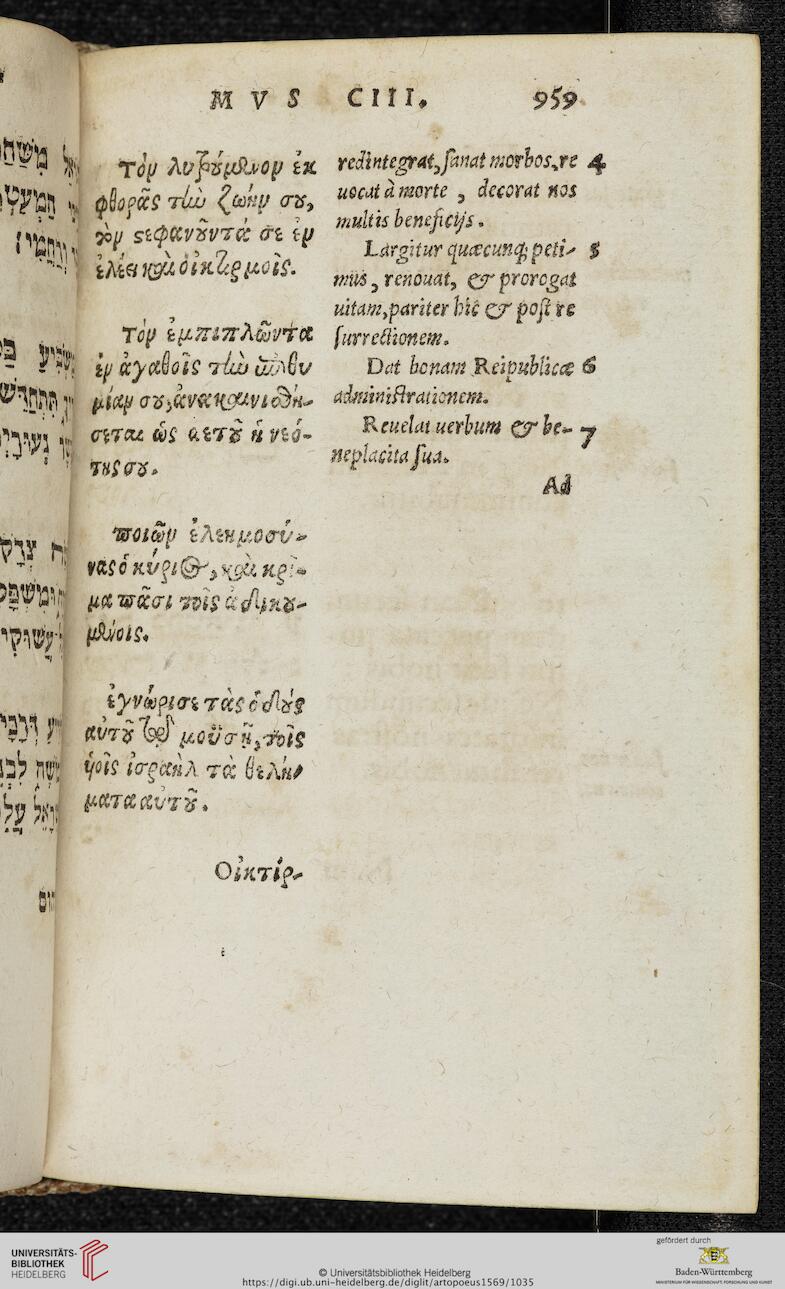 MVS CIII. 959
τὸν λυτρούμενον ἐκ
φθορᾶς τὴν ζωήν σου,
τὸν στεφανοῦντά σε ἐν
ἐλέει καὶ οἰκτιρμοῖς.
τὸν ἐμπιπλῶντα
ἐν ἀγαθοῖς τὴν ἐπιθυ
μίαν σου, ἀνακαινισθή-
σεται ὡς ἀετοῦ ἡ νεό-
της σου.
ποιῶν ἐλεημοσύ-
νας ὁ κύριος, καὶ κρί-
μα πᾶσι τοῖς ἀδικου-
μένοις.
ἐγνώρισε τὰς ὁδοὺς
αὐτοῦ τῷ μοϋσῇ, τοῖς
υἱοῖς ἰσραὴλ τὰ θελή-
ματα αὐτοῦ.
Οἰκτίρ-
redintegrat, sanat morbos, re 4
uocat à morte, decorat nos
multis beneficijs.
Largitur quæcunq; peti- 5
mus, renouat, & prorogat
uitam, pariter hîc & post re
surrectionem.
Dat bonam Reipublicæ 6
administrationem.
Reuelat uerbum & be- 7
neplacita sua.
Ad
UNIVERSITÄTS-
BIBLIOTHEK
HEIDELBERG
© Universitätsbibliothek Heidelberg
https://digi.ub.uni-heidelberg.de/diglit/artopoeus1569/1035
gefördert durch
Baden-Württemberg
MINISTERIUM FÜR WISSENSCHAFT, FORSCHUNG UND KUNST